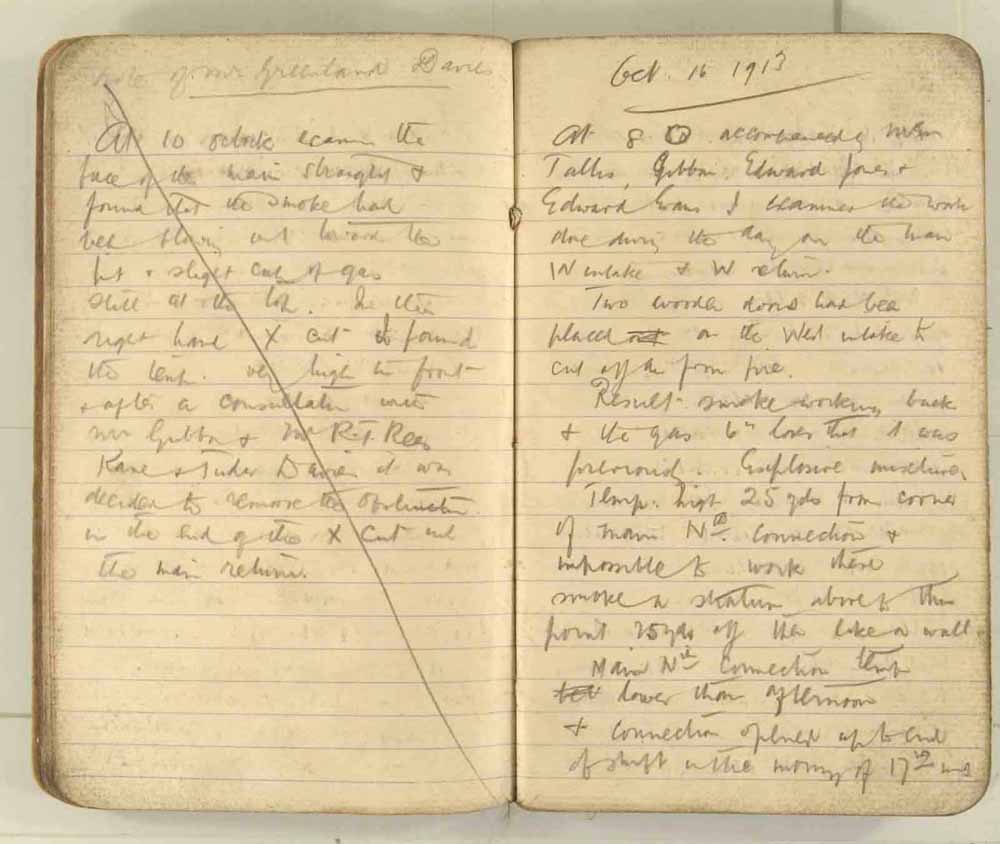 Note of Mr Greenland Davies
At 10 oclock examin the
face of the main straight &
found that the smoke had
been blowing out toward the
pit & slight cap of gas
still at the top. In the
right hand X cut I found
the temp. very high in front
& after a consultatn with
Mr Gibbon & Mr R.T. Rees
Kane & Tudor Davies it was
decided to remove the obstruction
in the end of the X cut
the main return.
Oct. 16 1913
At 8 accompanied by
Tallis, Gibbon, Edward Jones &
Edward Evans I examined the work
done during the day on the main
W intake & W return.
Two wooden doors had been
placed on the West intake to
cut off air from fire.
Result smoke working back
& the gas 6" lower than it was
previously. Explosive mixture
Temp. high 25 yds from corner
of main Nth. Connection &
impossible to work there
smoke stationary above to this
point 25 yds off then like a wall
Main Nth Connection temp
lower than afternoon
& connection opened up to end
of shift in the morng of 17th inst